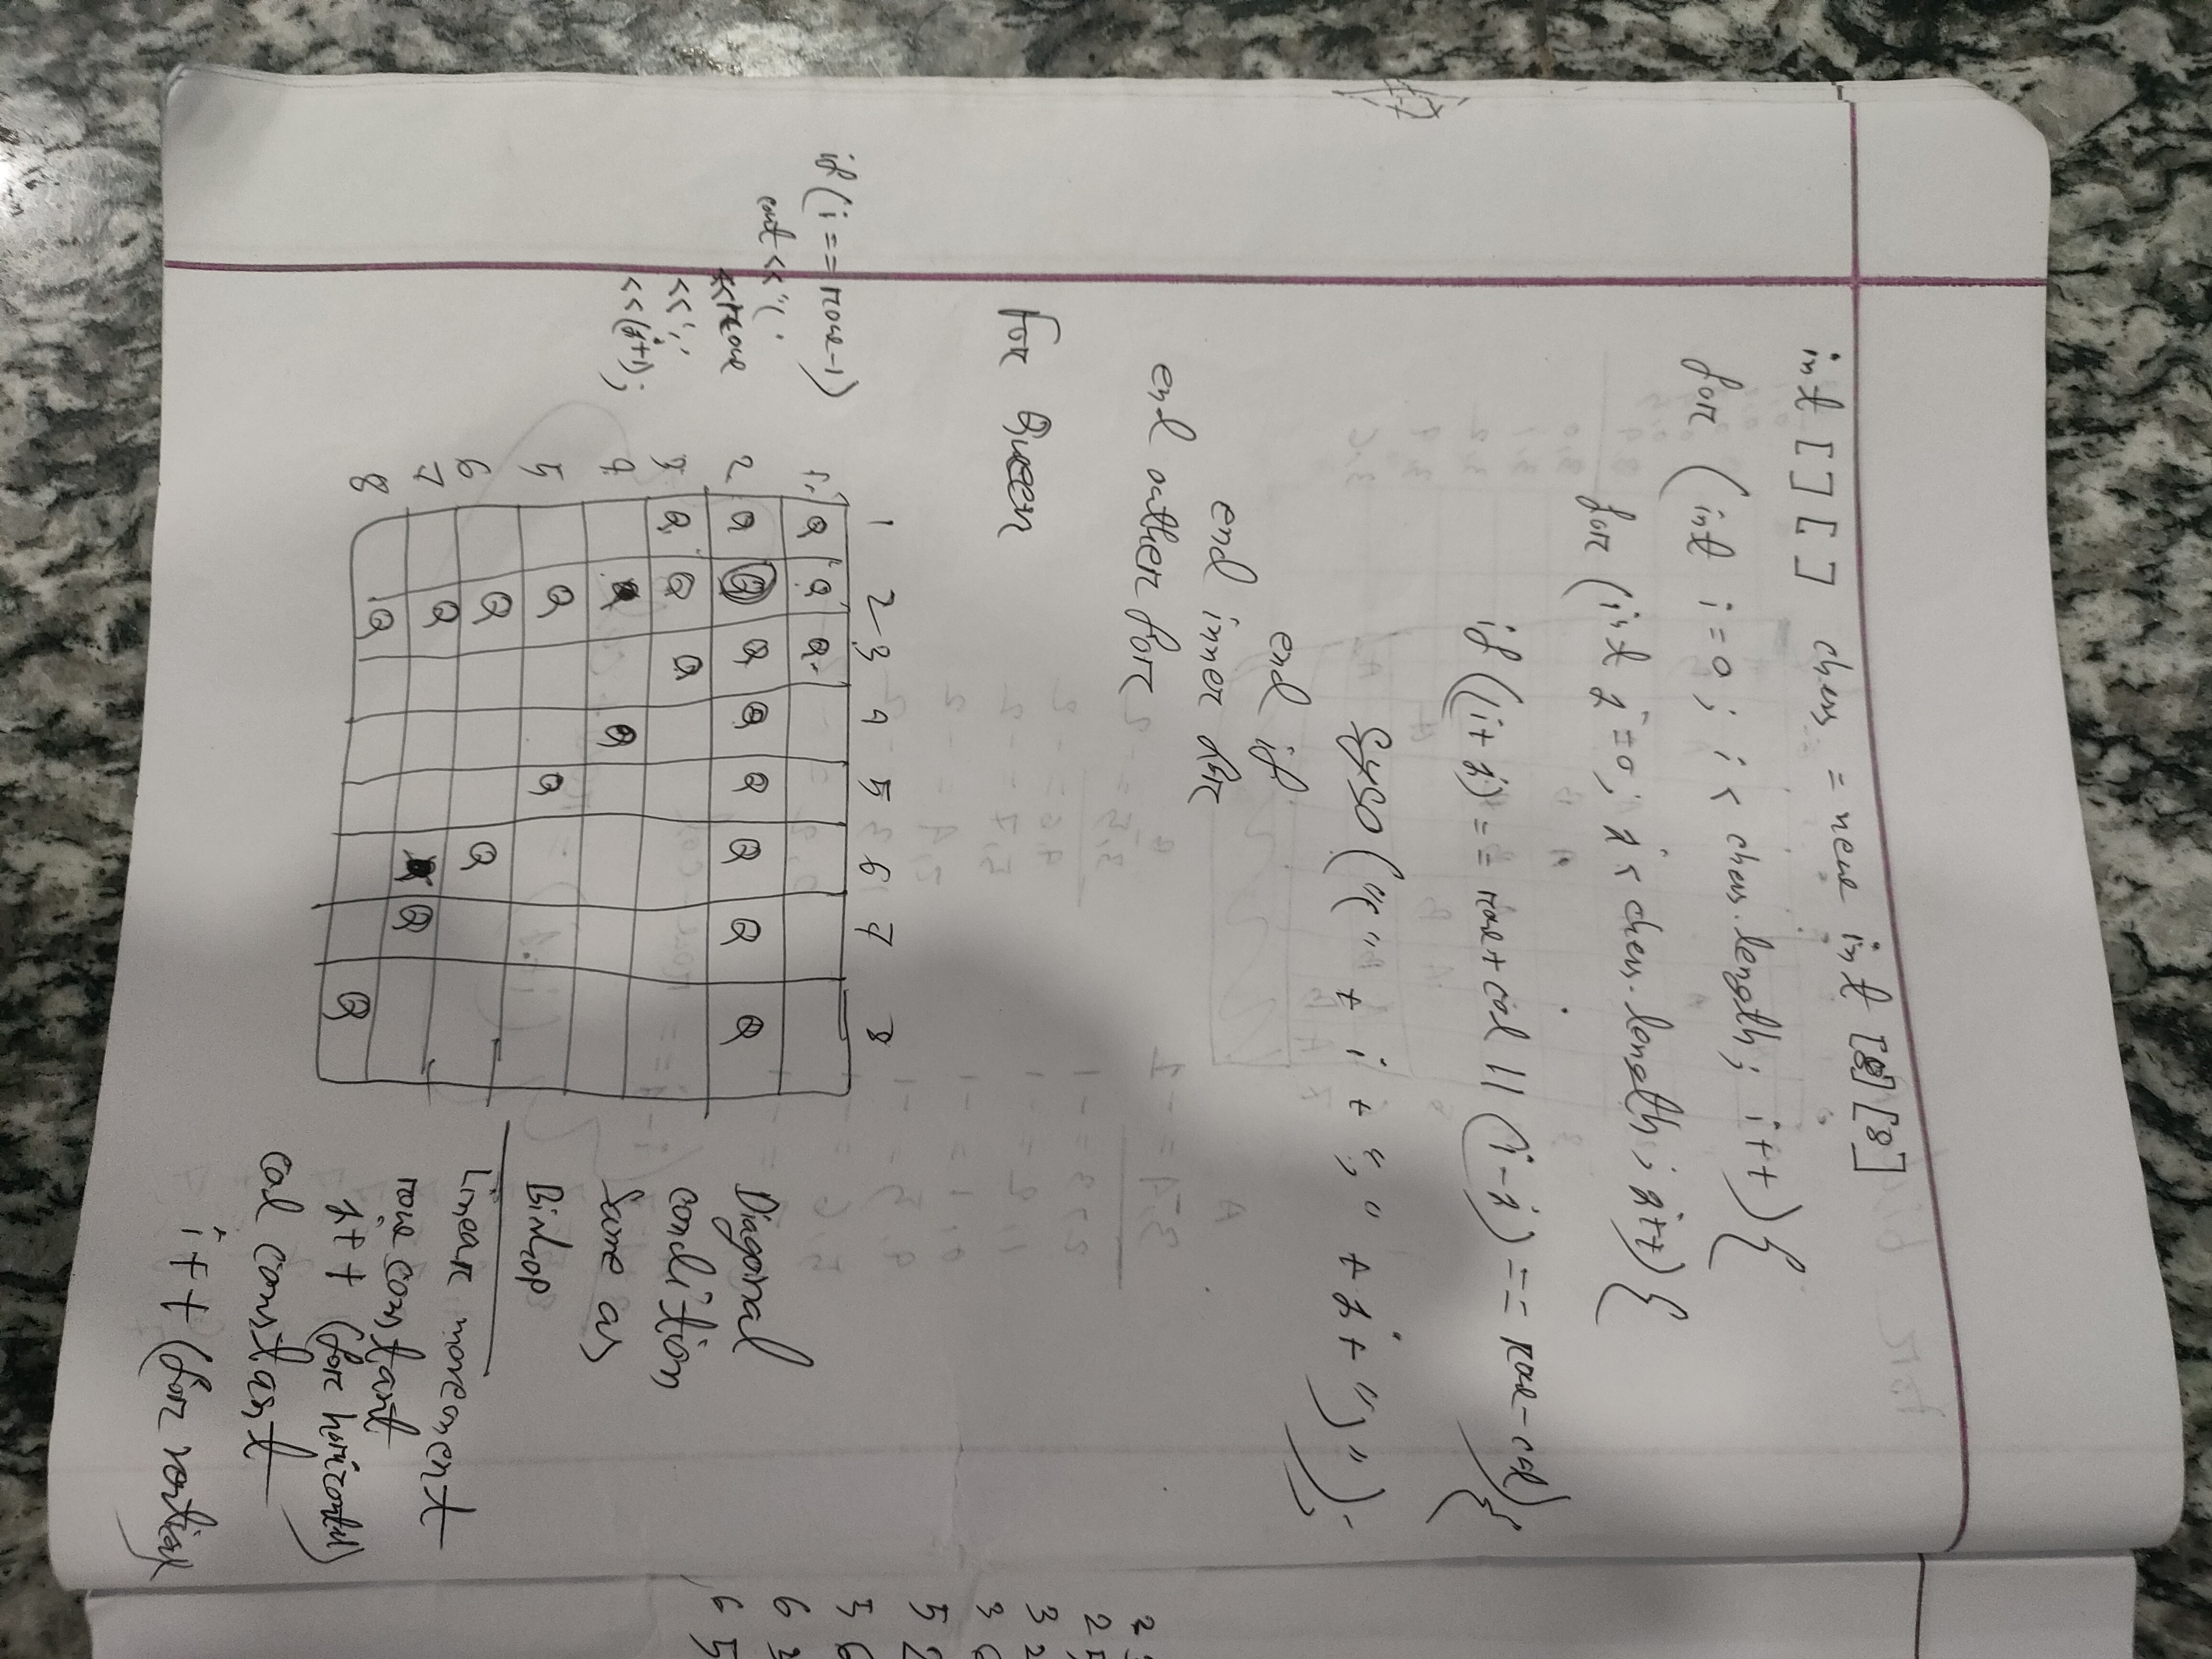 int [ ] [ ] chess = new int [8] [8]
for ( int i = 0 ; i < chess.length ; i++ ) {
for ( int j = 0 ; j < chess.length ; j++ ) {
if ((i+j) == row + col || (i-j) == row-col) {
syso ("(" + i + "," + j + ")");
end if
end inner for
end outher for
For Queen
1 2 3 4 5 6 7 8
if (i == row-1)
cout << "(
<< row
<< ','
<< (j+1);
1. Q Q Q
2 Q Q Q Q Q Q Q Q
3 Q Q Q
4 Q
5 Q Q
6 Q Q
7 Q Q
8 Q Q
Diagonal
condition
Same as
Bishop
Linear movement
row constant
j++ (for horizontal)
col constant
i++ (for vertical
2
2 5
3 2
3 6
5 2
5 6
6 3
6 5